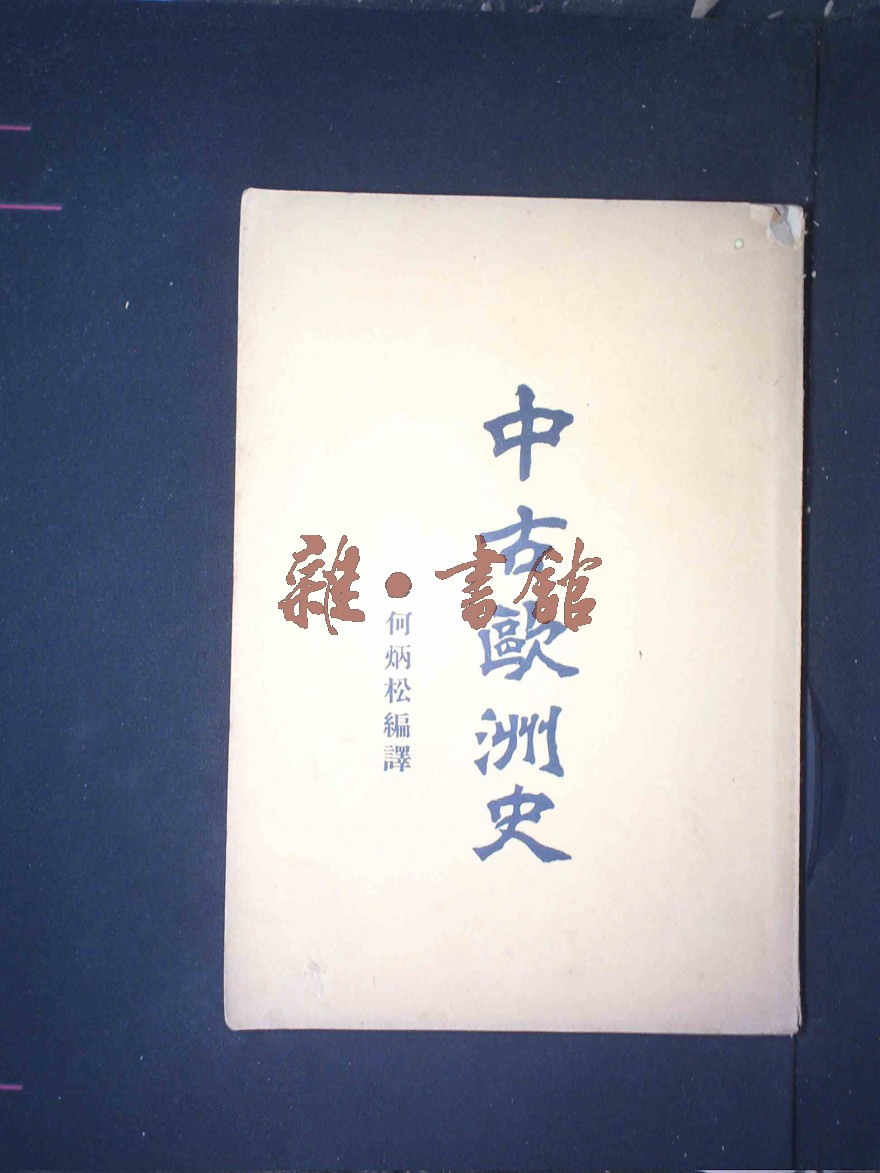 中古歐洲史
何炳松編譯
雜•書館